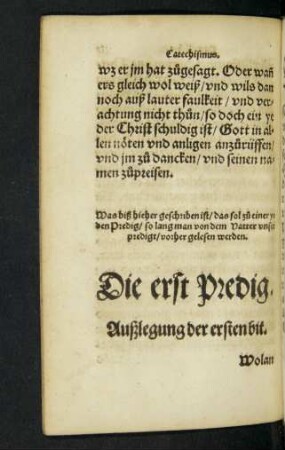 Catechismus.
wz er jm hat zůgesagt. Oder wañ
ers gleich wol weiß/vnd wils dan
noch auß lauter faulkeit / vnd ver
achtung nicht thůn/so doch ein ye
der Christ schuldig ist/Gott in al
len nöten vnd anligen anzůrůffen/
vnd jm zů dancken/vnd seinen na
men zůpreisen.
Was biß hieher geschriben ist/das sol zů einer ye
den Predig/so lang man von dem Vatter vnser
predigt/vorher gelesen werden.
Die erst Predig.
Außlegung der ersten bit.
Wolan